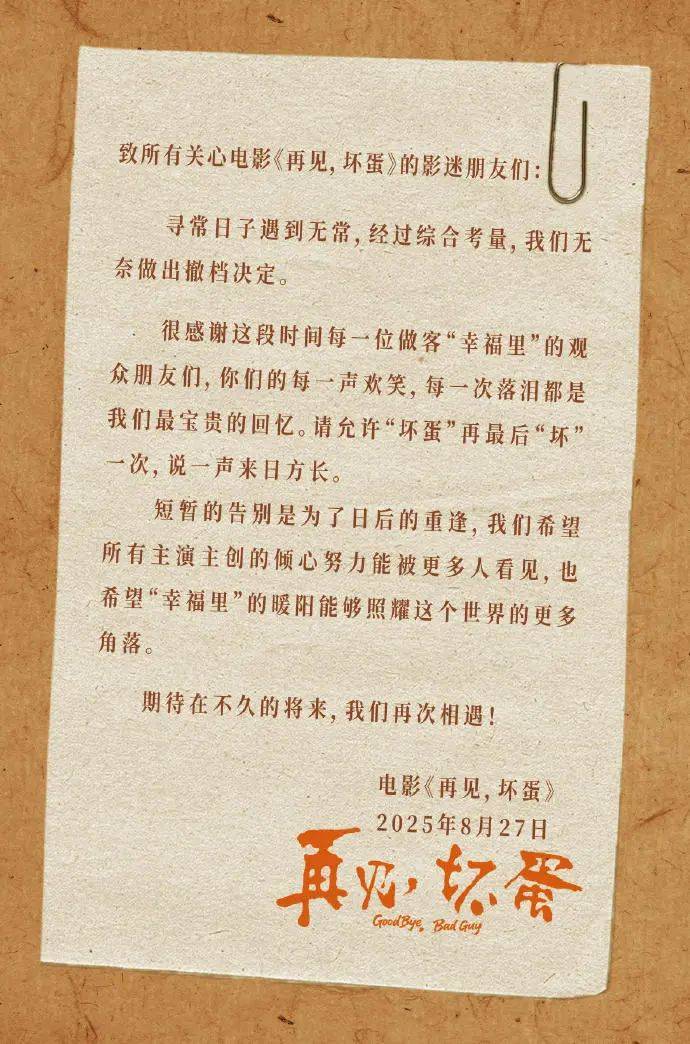 致所有关心电影《再见，坏蛋》的影迷朋友们：
寻常日子遇到无常，经过综合考量，我们无
奈做出撤档决定。
很感谢这段时间每一位做客“幸福里”的观
众朋友们，你们的每一声欢笑，每一次落泪都是
我们最宝贵的回忆。请允许“坏蛋”再最后“坏”
一次，说一声来日方长。
短暂的告别是为了日后的重逢，我们希望
所有主演主创的倾心努力能被更多人看见，也
希望“幸福里”的暖阳能够照耀这个世界的更多
角落。
期待在不久的将来，我们再次相遇！
电影《再见，坏蛋》
2025年8月27日
再见，坏蛋
GoodBye, Bad Guy